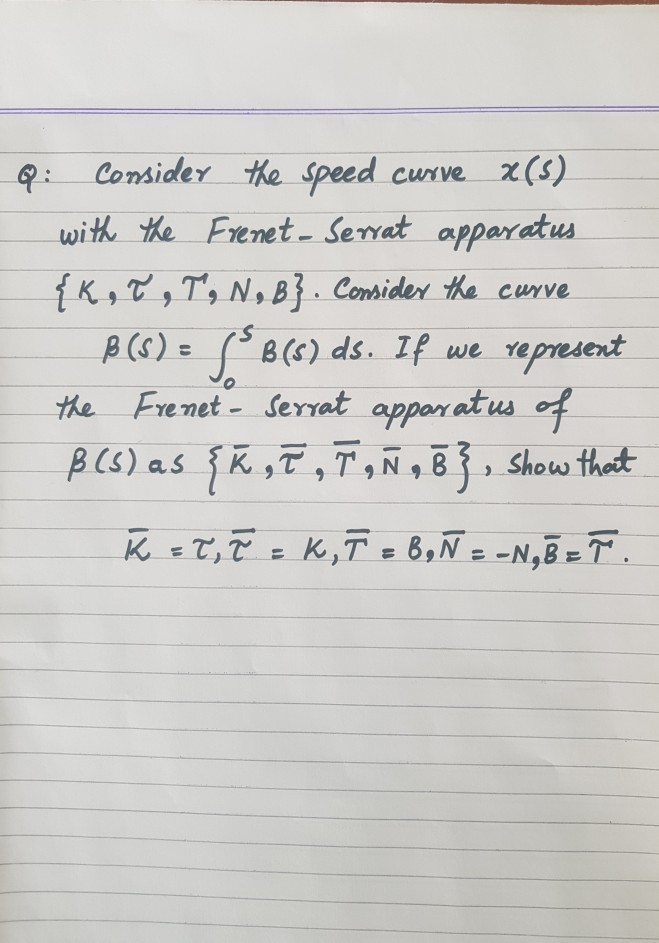 Q: Consider the speed curve x(s)
with the Frenet-Serrat apparatus
{K, τ, T, N, B}. Consider the curve
β(s) = ∫₀ˢ B(s) ds. If we represent
the Frenet-Serrat apparatus of
β(s) as {K̄, τ̄, T̄, N̄, B̄}, show that
K̄ = τ, τ̄ = K, T̄ = B, N̄ = -N, B̄ = T̄.